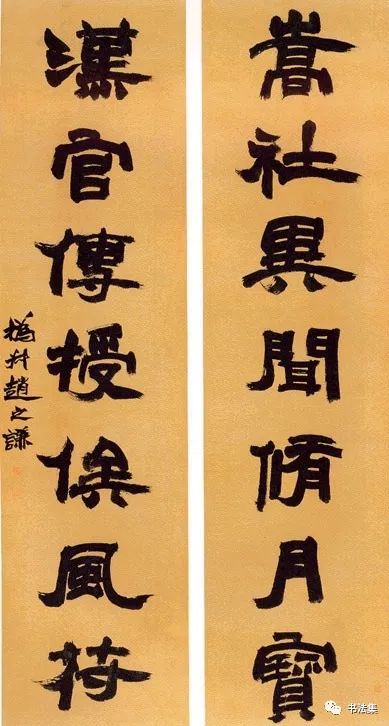 嵩社異聞脩月寶
漢官傳授候風
撝叔趙之謙
书法集